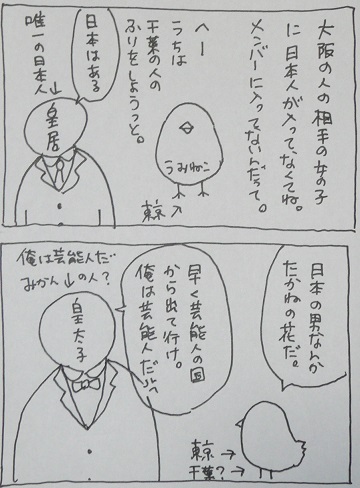 大阪の人の相手の女の子
に日本人が入って、なくてね。
メンバーに入ってないんだって。
へー
うちは
千葉の人の
ふりをしようっと。
うみねこ
日本はある
唯一の日本人
皇居
日本の男なんか
たかねの花だ。
早く芸能人の国
から出て行け。
俺は芸能人だぞ
俺は芸能人だ
みかんの人？
皇太子
千葉？→